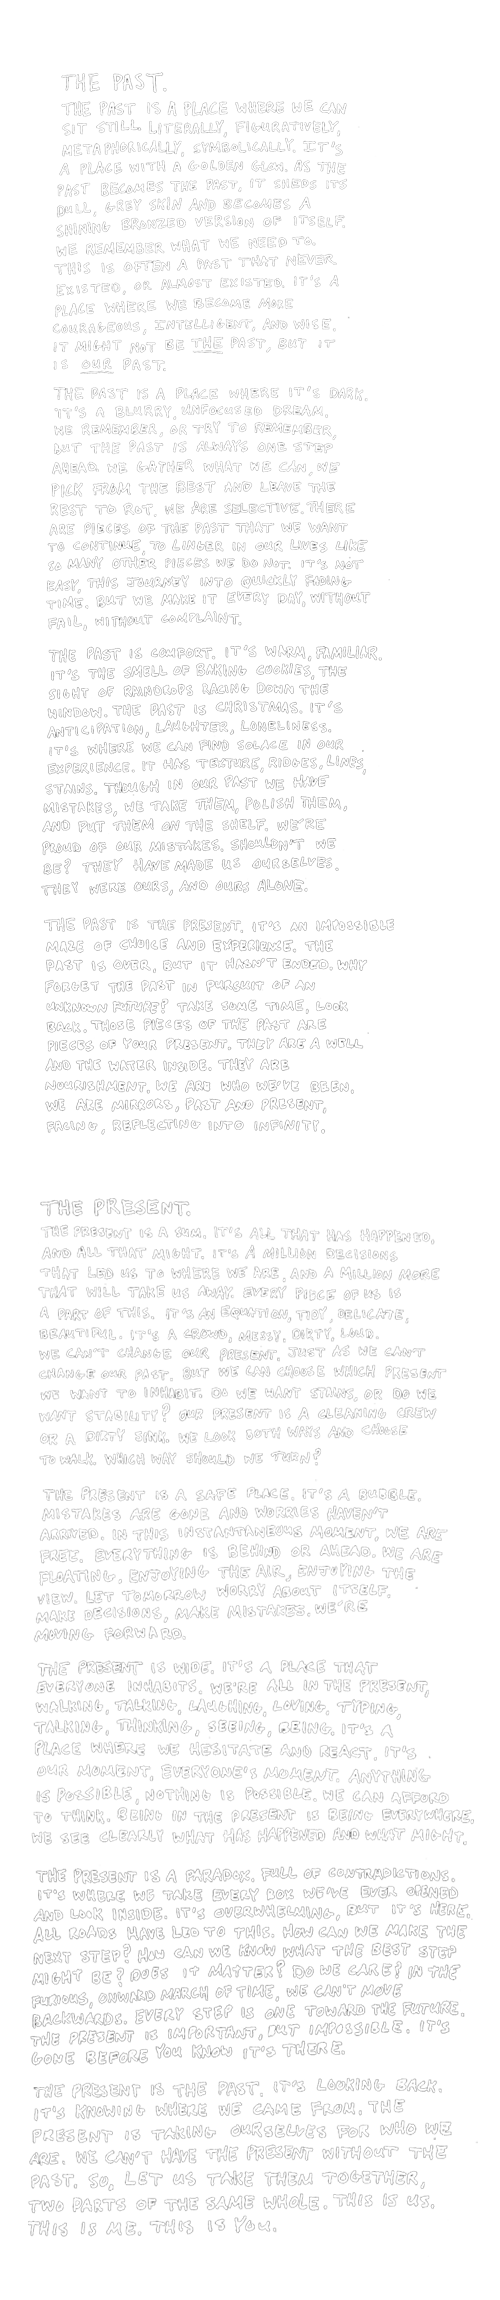 THE PAST.
THE PAST IS A PLACE WHERE WE CAN
SIT STILL. LITERALLY, FIGURATIVELY,
METAPHORICALLY, SYMBOLICALLY. IT'S
A PLACE WITH A GOLDEN GLOW. AS THE
PAST BECOMES THE PAST, IT SHEDS ITS
DULL, GREY SKIN AND BECOMES A
SHINING BRONZED VERSION OF ITSELF.
WE REMEMBER WHAT WE NEED TO.
THIS IS OFTEN A PAST THAT NEVER
EXISTED, OR ALMOST EXISTED. IT'S A
PLACE WHERE WE BECOME MORE
COURAGEOUS, INTELLIGENT, AND WISE.
IT MIGHT NOT BE THE PAST, BUT IT
IS OUR PAST.
THE PAST IS A PLACE WHERE IT'S DARK.
IT'S A BLURRY, UNFOCUSED DREAM.
WE REMEMBER, OR TRY TO REMEMBER,
BUT THE PAST IS ALWAYS ONE STEP
AHEAD. WE GATHER WHAT WE CAN, WE
PICK FROM THE BEST AND LEAVE THE
REST TO ROT. WE ARE SELECTIVE. THERE
ARE PIECES OF THE PAST THAT WE WANT
TO CONTINUE, TO LINGER IN OUR LIVES LIKE
SO MANY OTHER PIECES WE DO NOT. IT'S NOT
EASY, THIS JOURNEY INTO QUICKLY FADING
TIME. BUT WE MAKE IT EVERY DAY, WITHOUT
FAIL, WITHOUT COMPLAINT.
THE PAST IS COMFORT. IT'S WARM, FAMILIAR.
IT'S THE SMELL OF BAKING COOKIES, THE
SIGHT OF RAINDROPS RACING DOWN THE
WINDOW. THE PAST IS CHRISTMAS. IT'S
ANTICIPATION, LAUGHTER, LONELINESS.
IT'S WHERE WE CAN FIND SOLACE IN OUR
EXPERIENCE. IT HAS TEXTURE, RIDGES, LINES,
STAINS. THOUGH IN OUR PAST WE HAVE
MISTAKES, WE TAKE THEM, POLISH THEM,
AND PUT THEM ON THE SHELF. WE'RE
PROUD OF OUR MISTAKES. SHOULDN'T WE
BE? THEY HAVE MADE US OURSELVES.
THEY WERE OURS, AND OURS ALONE.
THE PAST IS THE PRESENT. IT'S AN IMPOSSIBLE
MAZE OF CHOICE AND EXPERIENCE. THE
PAST IS OVER, BUT IT HASN'T ENDED. WHY
FORGET THE PAST IN PURSUIT OF AN
UNKNOWN FUTURE? TAKE SOME TIME, LOOK
BACK. THOSE PIECES OF THE PAST ARE
PIECES OF YOUR PRESENT. THEY ARE A WELL
AND THE WATER INSIDE. THEY ARE
NOURISHMENT. WE ARE WHO WE'VE BEEN.
WE ARE MIRRORS, PAST AND PRESENT,
FACING, REFLECTING INTO INFINITY.
THE PRESENT.
THE PRESENT IS A SUM. IT'S ALL THAT HAS HAPPENED,
AND ALL THAT MIGHT. IT'S A MILLION DECISIONS
THAT LED US TO WHERE WE ARE, AND A MILLION MORE
THAT WILL TAKE US AWAY. EVERY PIECE OF US IS
A PART OF THIS. IT'S AN EQUATION, TIDY, DELICATE,
BEAUTIFUL. IT'S A CROWD, MESSY, DIRTY, LOUD.
WE CAN'T CHANGE OUR PRESENT, JUST AS WE CAN'T
CHANGE OUR PAST. BUT WE CAN CHOOSE WHICH PRESENT
WE WANT TO INHABIT. DO WE WANT STAINS, OR DO WE
WANT STABILITY? OUR PRESENT IS A CLEANING CREW
OR A DIRTY SINK. WE LOOK BOTH WAYS AND CHOOSE
TO WALK. WHICH WAY SHOULD WE TURN?
THE PRESENT IS A SAFE PLACE. IT'S A BUBBLE.
MISTAKES ARE GONE AND WORRIES HAVEN'T
ARRIVED. IN THIS INSTANTANEOUS MOMENT, WE ARE
FREE. EVERYTHING IS BEHIND OR AHEAD. WE ARE
FLOATING, ENJOYING THE AIR, ENJOYING THE
VIEW. LET TOMORROW WORRY ABOUT ITSELF.
MAKE DECISIONS, MAKE MISTAKES. WE'RE
MOVING FORWARD.
THE PRESENT IS WIDE. IT'S A PLACE THAT
EVERYONE INHABITS. WE'RE ALL IN THE PRESENT,
WALKING, TALKING, LAUGHING, LOVING, TYPING,
TALKING, THINKING, SEEING, BEING. IT'S A
PLACE WHERE WE HESITATE AND REACT. IT'S
OUR MOMENT, EVERYONE'S MOMENT. ANYTHING
IS POSSIBLE, NOTHING IS POSSIBLE. WE CAN AFFORD
TO THINK. BEING IN THE PRESENT IS BEING EVERYWHERE.
WE SEE CLEARLY WHAT HAS HAPPENED AND WHAT MIGHT.
THE PRESENT IS A PARADOX, FULL OF CONTRADICTIONS.
IT'S WHERE WE TAKE EVERY BOX WE'VE EVER OPENED
AND LOOK INSIDE. IT'S OVERWHELMING, BUT IT'S HERE.
ALL ROADS HAVE LED TO THIS. HOW CAN WE MAKE THE
NEXT STEP? HOW CAN WE KNOW WHAT THE BEST STEP
MIGHT BE? DOES IT MATTER? DO WE CARE? IN THE
FURIOUS, ONWARD MARCH OF TIME, WE CAN'T MOVE
BACKWARDS. EVERY STEP IS ONE TOWARD THE FUTURE.
THE PRESENT IS IMPORTANT, BUT IMPOSSIBLE. IT'S
GONE BEFORE YOU KNOW IT'S THERE.
THE PRESENT IS THE PAST. IT'S LOOKING BACK.
IT'S KNOWING WHERE WE CAME FROM. THE
PRESENT IS TAKING OURSELVES FOR WHO WE
ARE. WE CAN'T HAVE THE PRESENT WITHOUT THE
PAST. SO, LET US TAKE THEM TOGETHER,
TWO PARTS OF THE SAME WHOLE. THIS IS US.
THIS IS ME. THIS IS YOU.